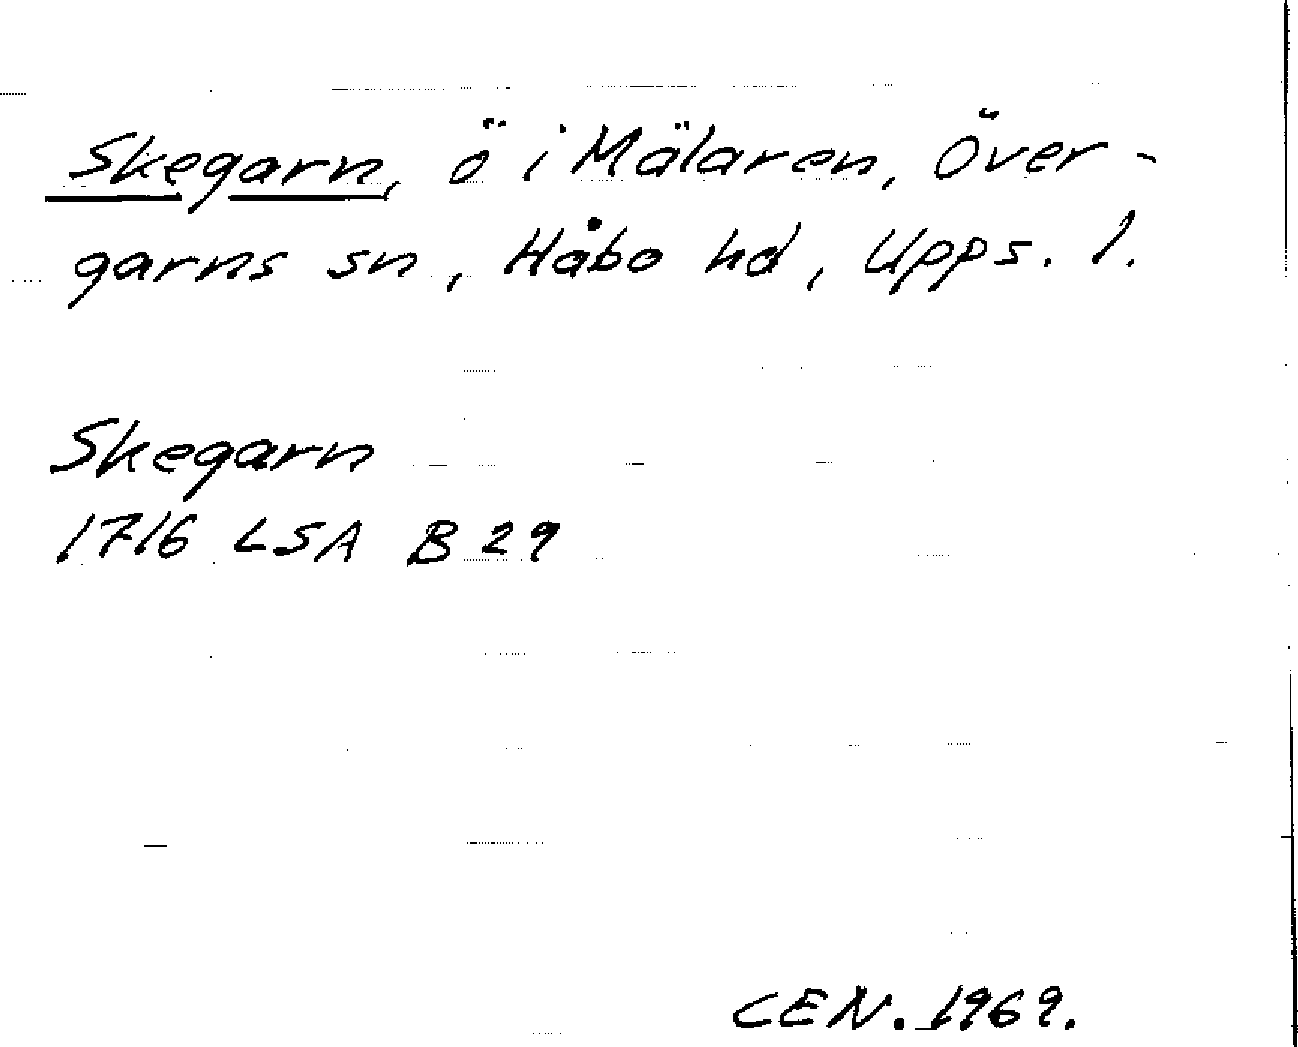 Skegarn, ö i Mälaren, Över-
garns sn, Håbo hd, Upps. l.
Skegarn
1716 LSA B 29
CEN. 1969.